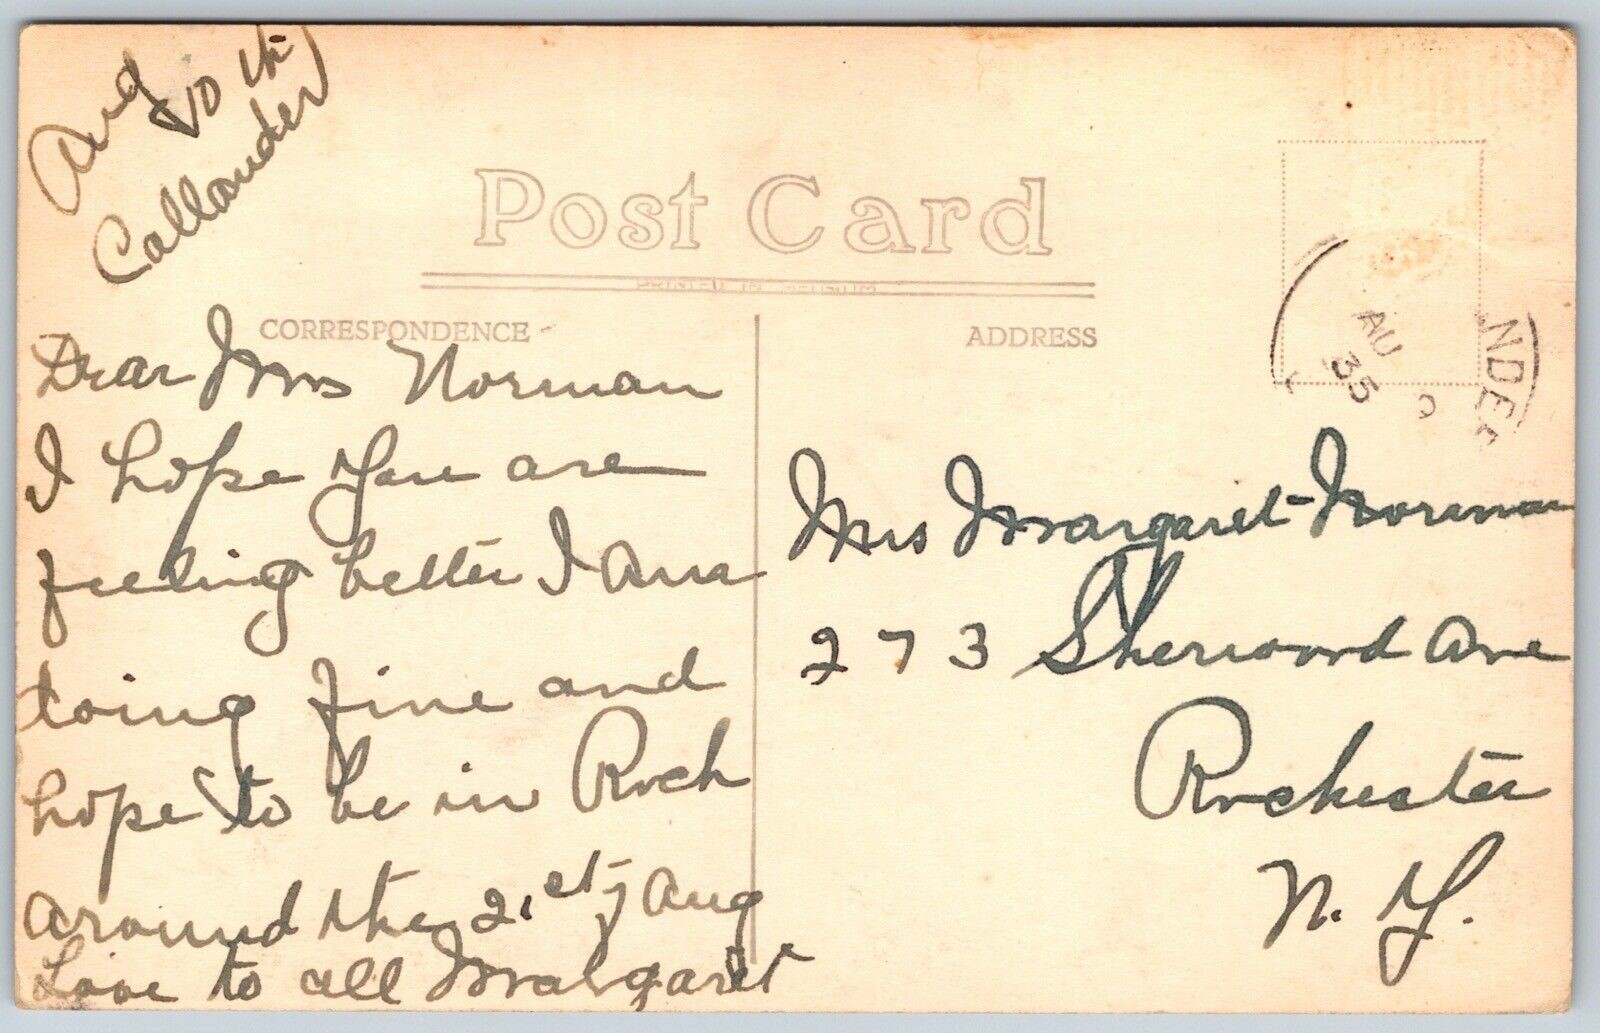 Aug 10th
Callander
Post Card
PRINTED IN BELGIUM
CORRESPONDENCE
ADDRESS
NDER
AU
35
Dear Mrs Norman
I hope you are
feeling better I am
doing fine and
hope to be in Roch
around the 21st of Aug
Love to all Margaret
Mrs Margaret Norman
273 Sherwood Ave
Rochester
N. Y.